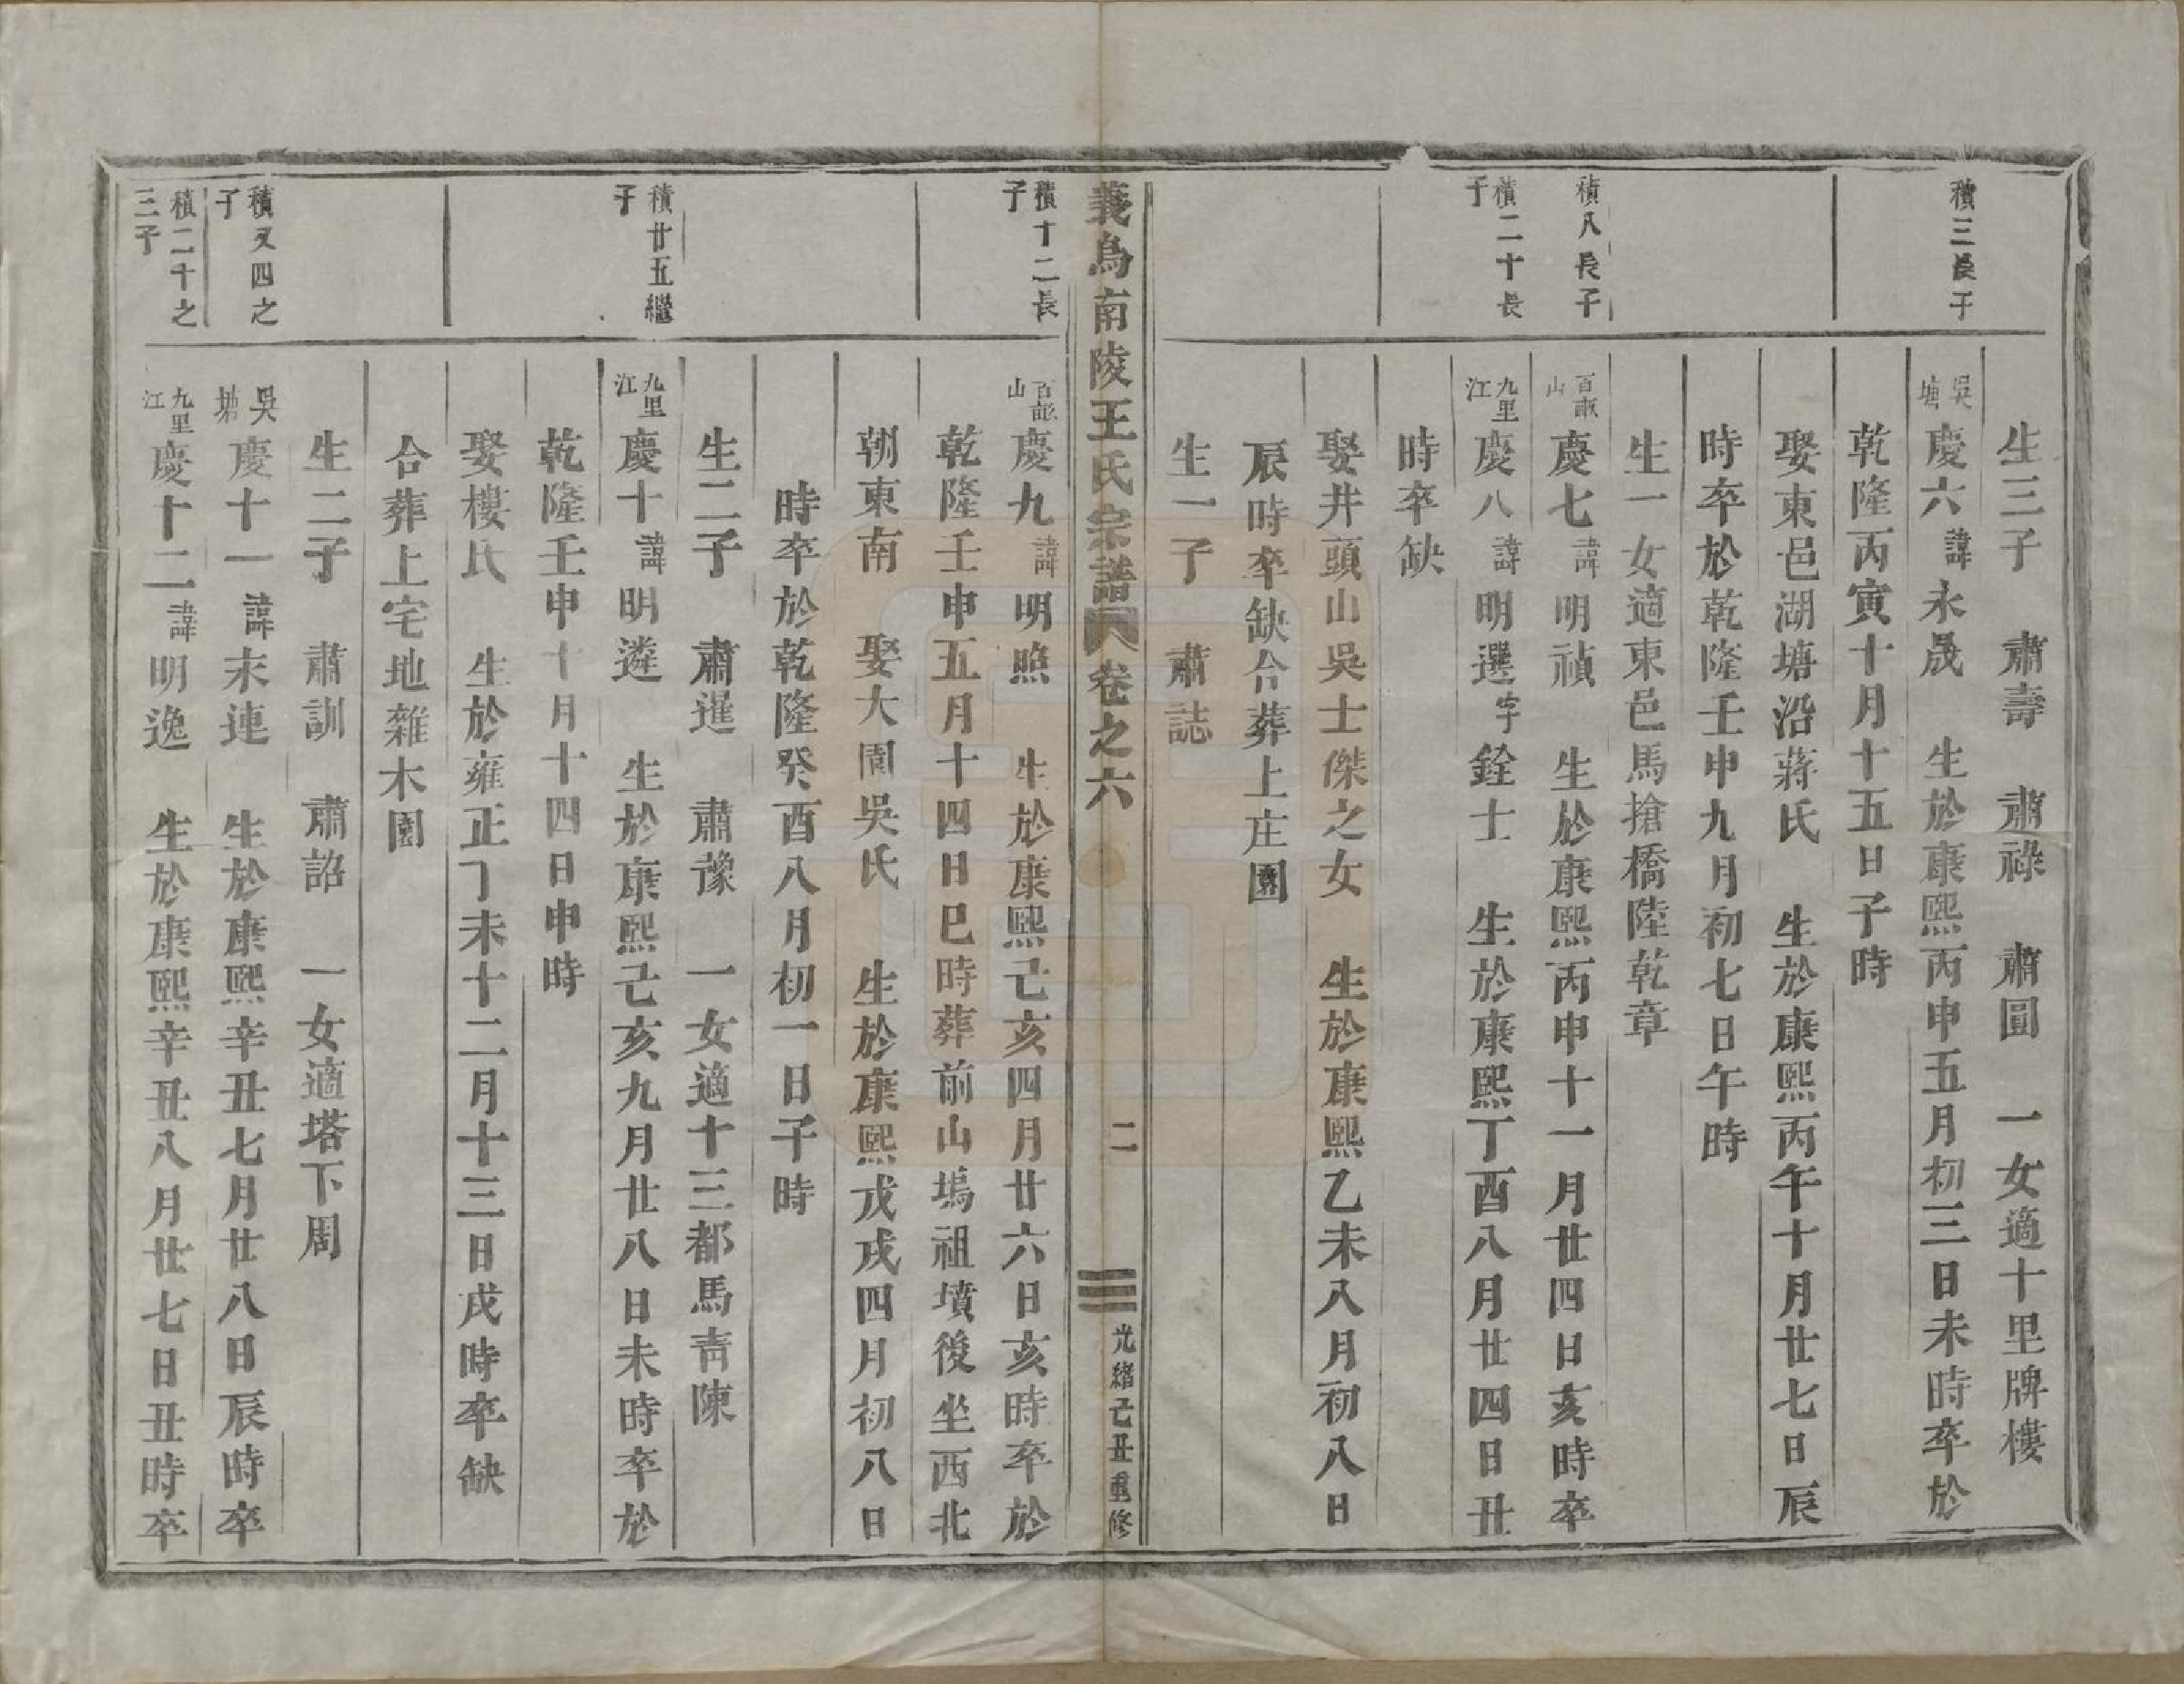 生三子　肅壽　肅祿　肅圓　一女適十里牌樓
積三長子
吳塘 慶六 諱永晟　生於康熙丙申五月初三日未時卒於
乾隆丙寅十月十五日子時
娶東邑湖塘沿蔣氏　生於康熙丙午十月廿七日辰
時卒於乾隆壬申九月初七日午時
生一女適東邑馬搶橋陸乾章
積八長子
百畝山 慶七 諱明禎　生於康熙丙申十一月廿四日亥時卒
積二十長子
九里江 慶八 諱明選 字銓士　生於康熙丁酉八月廿四日丑
時卒缺
娶井頭山吳士傑之女　生於康熙乙未八月初八日
辰時卒缺合葬上庄園
生一子　肅誌
義烏南陵王氏宗譜　卷之六　二　光緒己丑重修
積十二長子
百畝山 慶九 諱明照　生於康熙己亥四月廿六日亥時卒於
乾隆壬申五月十四日巳時葬前山塢祖墳後坐西北
朝東南　娶大園吳氏　生於康熙戊戌四月初八日
時卒於乾隆癸酉八月初一日子時
生二子　肅暹　肅豫　一女適十三都馬青陳
積廿五繼子
九里江 慶十 諱明遴　生於康熙己亥九月廿八日未時卒於
乾隆壬申十月十四日申時
娶樓氏　生於雍正丁未十二月十三日戌時卒缺
合葬上宅地雜木園
生二子　肅訓　肅詔　一女適塔下周
積又四之子
吳塘 慶十一 諱末連　生於康熙辛丑七月廿八日辰時卒
積二十之三子
九里江 慶十二 諱明逸　生於康熙辛丑八月廿七日丑時卒